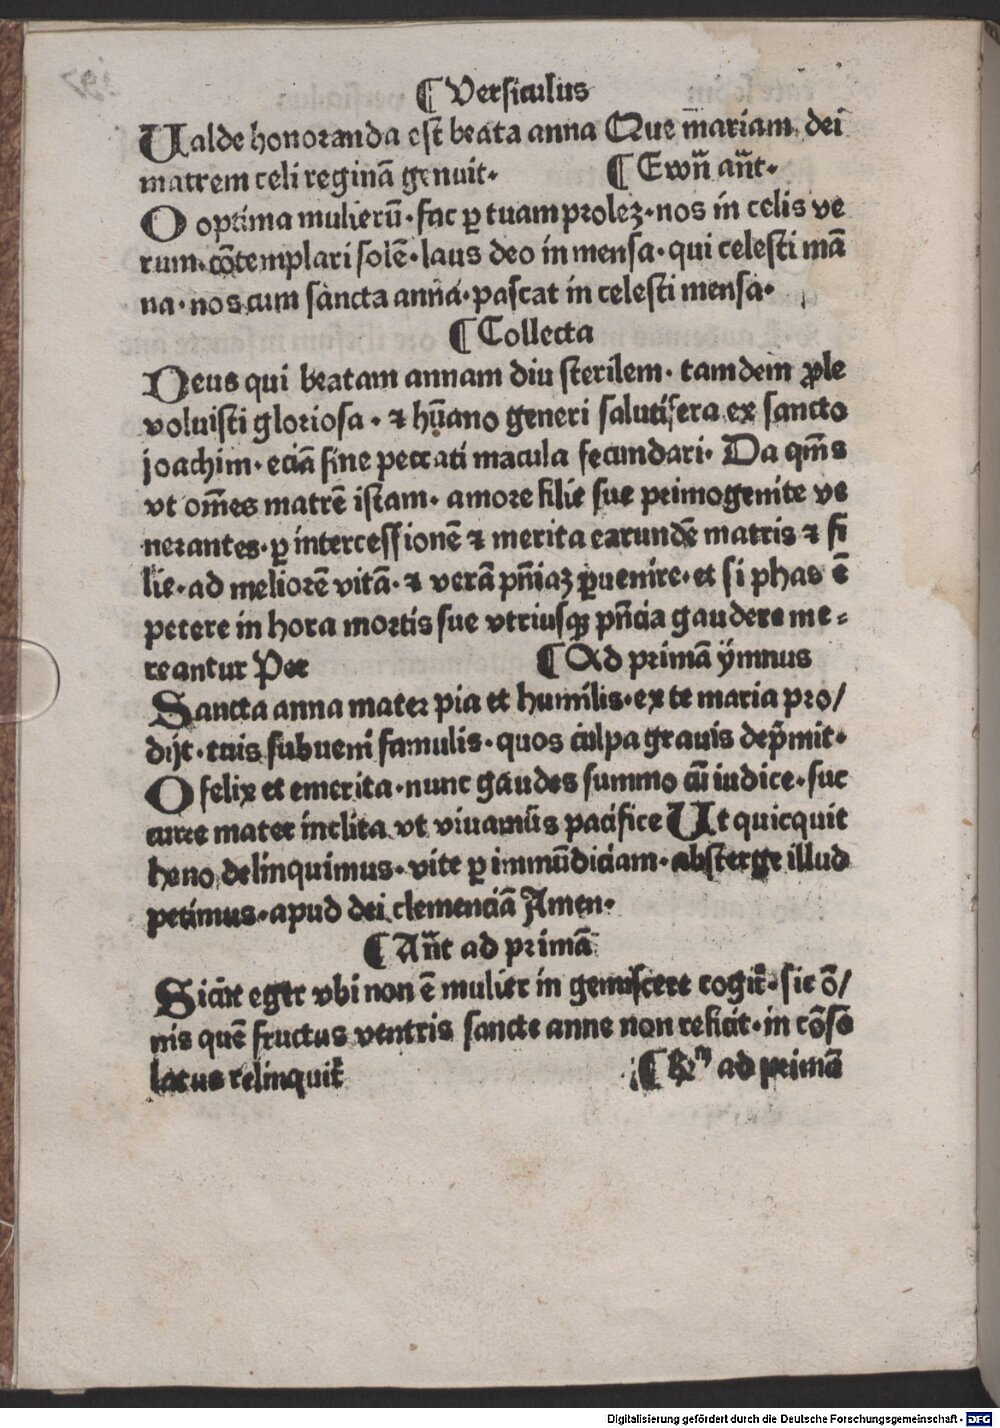 ¶ Versiculus
Ualde honoranda est beata anna Que mariam dei
matrem celi reginā genuit· ¶ Ewn̄ an̄t·
O optima mulierū· fac ꝑ tuam prolez· nos in celis ve
rum cōtemplari solē· laus deo in mensa· qui celesti mā
na· nos cum sancta anna· pascat in celesti mensa·
¶ Collecta
Deus qui beatam annam diu sterilem· tamdem ꝓle
voluisti gloriosa· ⁊ hūano generi salutifera ex sancto
joachim· eciā sine peccati macula fecundari· Da qm̄s
vt om̄es matrē istam· amore filie sue primogenite ve
nerantes· ꝑ intercessionē ⁊ merita earundē matris ⁊ fi
lie· ad meliorē vitā· ⁊ verā pn̄iaz ꝑuenire· et si phas ē
petere in hora mortis sue vtriusqꝫ pn̄cia gaudere me⸗
reantur Per ¶ Ad primā ÿmnus
Sancta anna mater pia et humilis· ex te maria pro/
dijt· tuis subueni famulis· quos culpa grauis dep̄mit·
O felix et emerita· nunc gaudes summo cū iudice· suc
curre mater inclita vt viuamus pacifice Ut quicquit
heno delinquimus· vite ꝑ immūdiciam· absterge illud
petimus· apud dei clemenciā Amen·
¶ An̄t ad primā
Sicut eger vbi non ē mulier in gemiscere cogit̄· sic ō/
nis quē fructus ventris sancte anne non reficit· in cōso
latus relinquit̄ ¶ ad primā
Digitalisierung gefördert durch die Deutsche Forschungsgemeinschaft - DFG